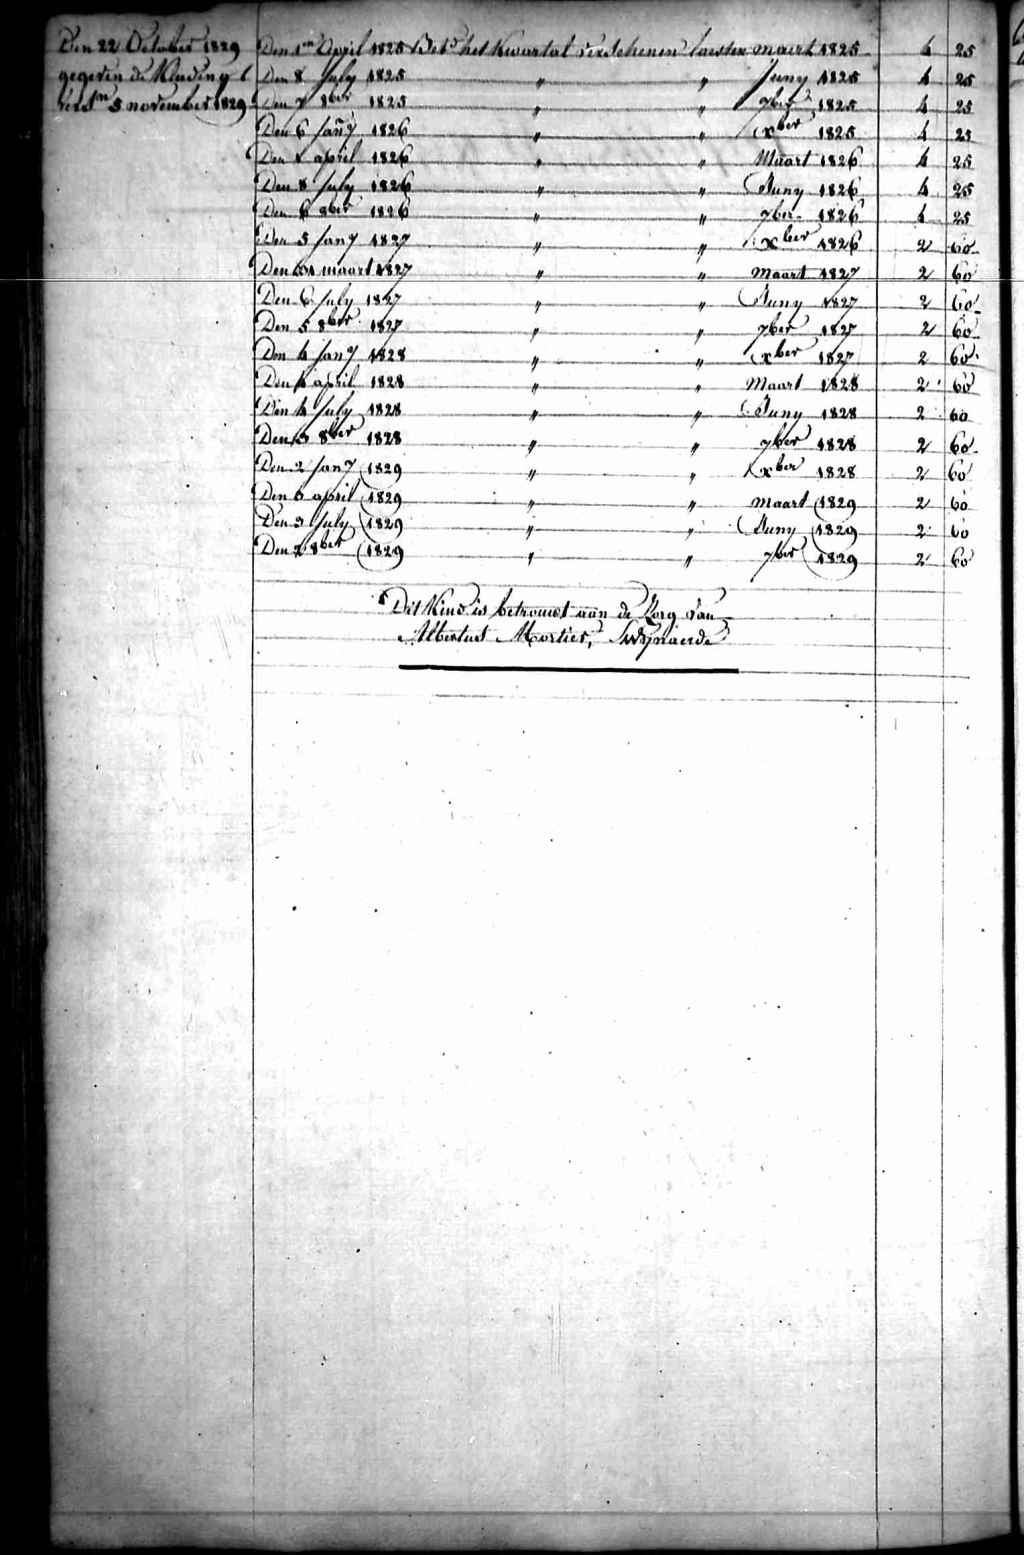 Den 22 October 1829
gegeven de Kleeding
5 november 1829
Den 1en April 1825 Betd het Kwartal verschenen laesten maert 1825 4 25
Den 8 July 1825 " " Juny 1825 4 25
Den 7 8ber 1825 " " 7ber 1825 4 25
Den 6 Jany 1826 " " xber 1825 4 25
Den april 1826 " " Maart 1826 4 25
Den 8 July 1826 " " Juny 1826 4 25
Den 6 8ber 1826 " " 7ber 1826 4 25
Den 5 Jany 1827 " " xber 1826 2 60
Den 31 maart 1827 " " maart 1827 2 60
Den 6 July 1827 " " Juny 1827 2 60
Den 5 8ber 1827 " " 7ber 1827 2 60
Den 4 Jany 1828 " " xber 1827 2 60
Den 4 april 1828 " " Maart 1828 2 60
Den 4 July 1828 " " Juny 1828 2 60
Den 3 8ber 1828 " " 7ber 1828 2 60
Den 2 Jany 1829 " " xber 1828 2 60
Den april 1829 " " maart 1829 2 60
Den 3 July 1829 " " Juny 1829 2 60
Den 2 8ber 1829 " " 7ber 1829 2 60
Dit Kind is betrouwt aan de Zorg van
Albertus Mortier, Swynaerde